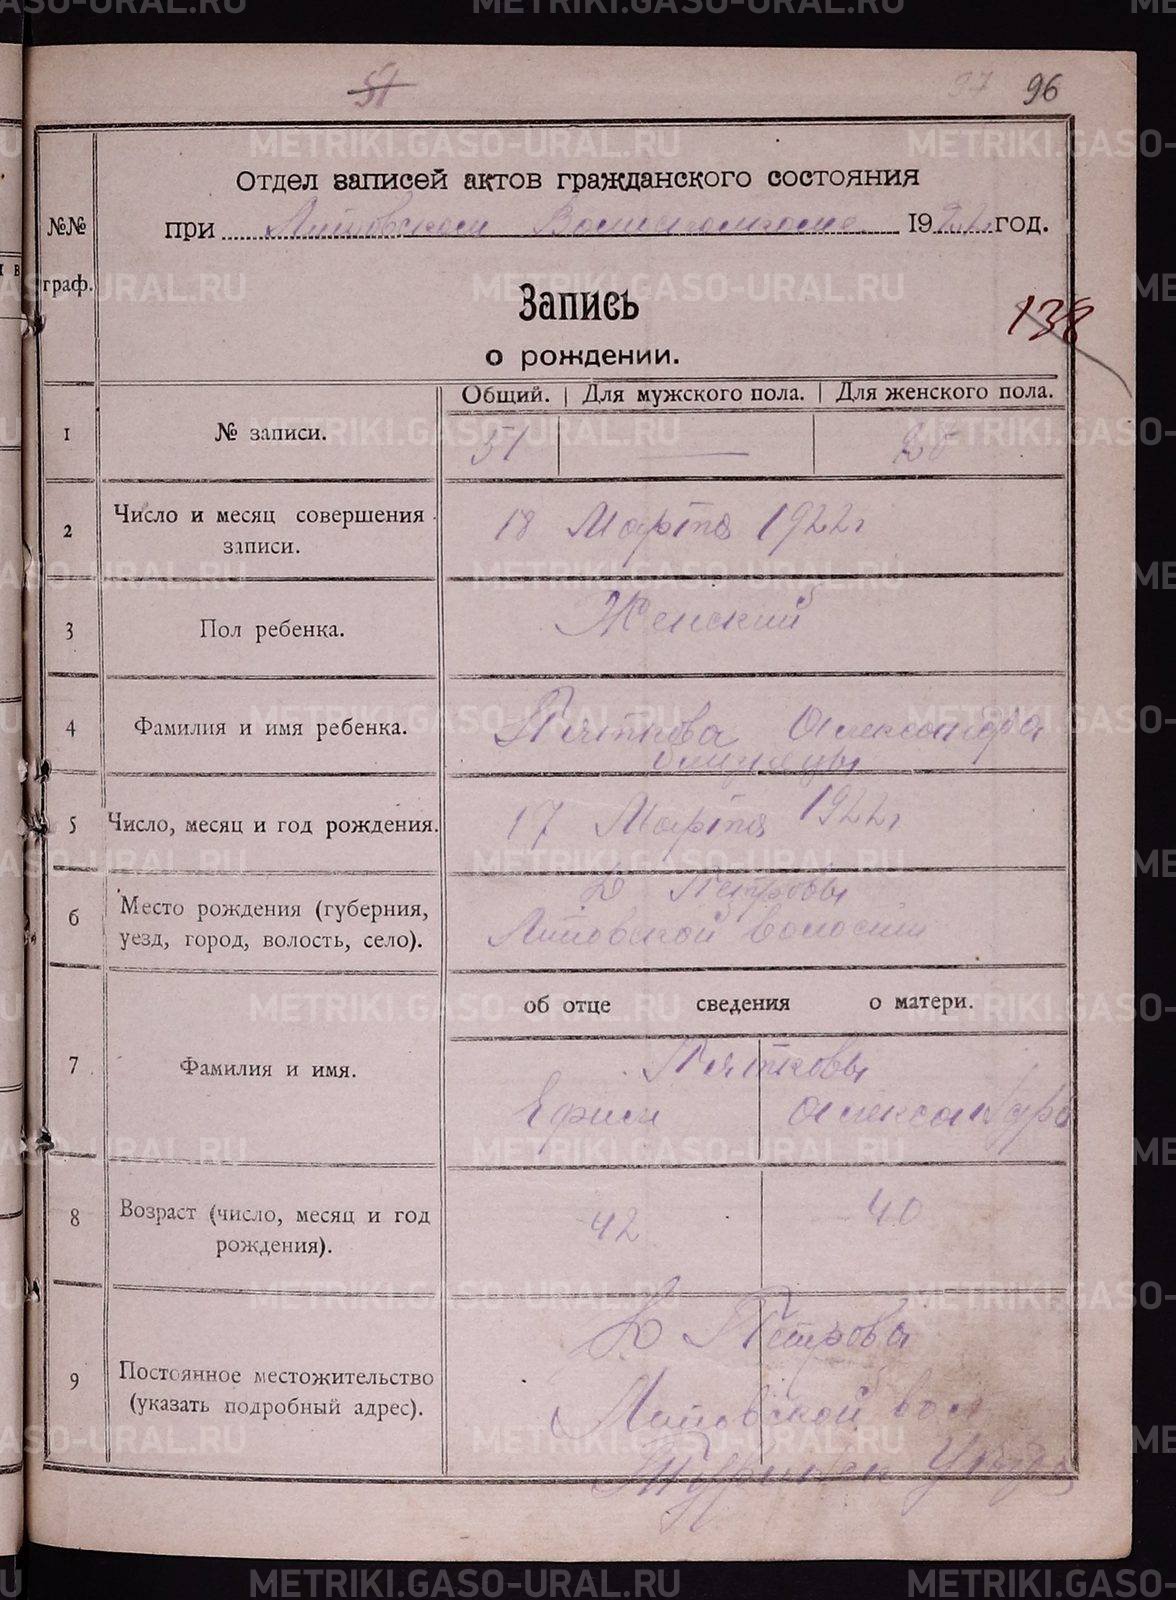 51
97 96
Отдел записей актов гражданского состояния
№№ граф.
при Липовском Волисполкоме 1922 год.
Запись
о рождении.
138
Общий. | Для мужского пола. | Для женского пола.
1 № записи. 51 — 26
2 Число и месяц совершения записи. 18 Марта 1922 г
3 Пол ребенка. Женский
4 Фамилия и имя ребенка. Пяткова Александра
близнецы
5 Число, месяц и год рождения. 17 Марта 1922 г
6 Место рождения (губерния, уезд, город, волость, село). Д Петровы
Липовской волости
об отце сведения о матери.
7 Фамилия и имя. Пятковы
Ефим Александра
8 Возраст (число, месяц и год рождения). 42 40
9 Постоянное местожительство (указать подробный адрес). Д Петровы
Липовской вол
Туринск Уезда
METRIKI.GASO-URAL.RU